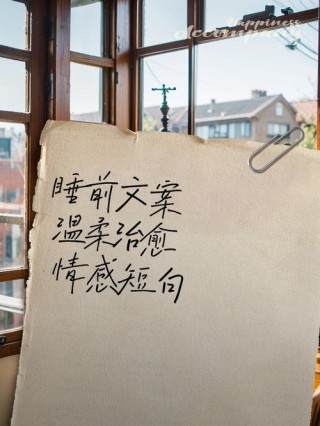 Happiness
accompany
睡前文案
温柔治愈
情感短句